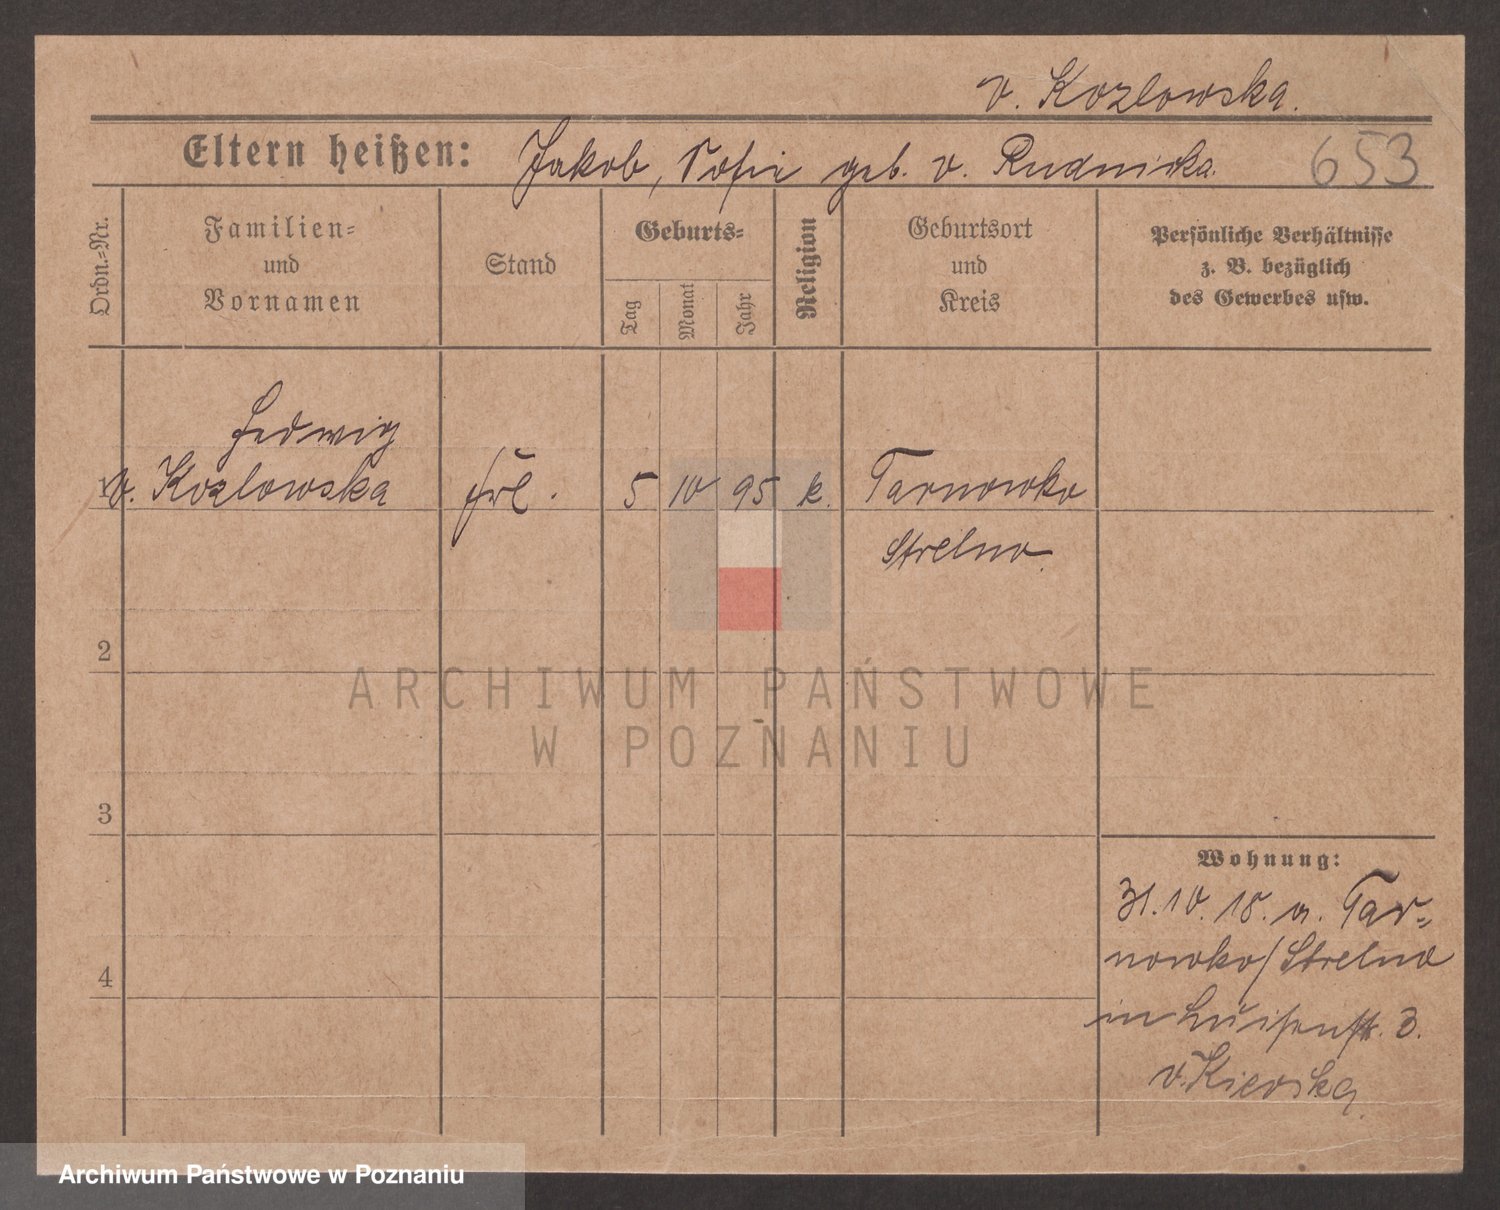 v. Kozlowska.
Eltern heißen: Jakob, Sofie geb. v. Rudnicka. 653
Ordn.-Nr.
Familien=
und
Vornamen
Stand
Geburts=
Tag
Monat
Jahr
Religion
Geburtsort
und
Kreis
Persönliche Verhältnisse
z. B. bezüglich
des Gewerbes usw.
Hedwig
1 v. Kozlowska Frl. 5 10 95 k. Tarnowko
Strelno.
2
ARCHIWUM PAŃSTWOWE
W POZNANIU
3
Wohnung:
31.10.18. a. Tar=
4 nowko/Strelno
in Luisenstr. 3.
v.
Archiwum Państwowe w Poznaniu